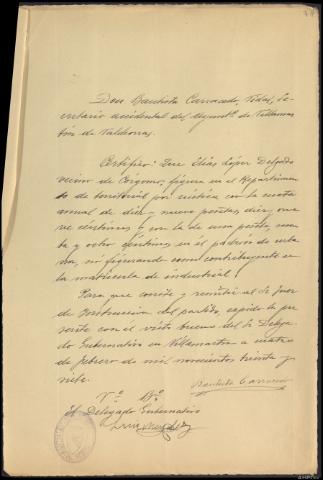 Don Bautista Carracedo Vidal, Se-
cretario accidental del Ayunt.º de Villamar-
tín de Valdeorras.
Certifico: Que Elías López Delgado
vecino de Córgomo, figura en el Repartimien-
to de territorial por rústica con la cuota
anual de diez y nueve pesetas diez y nue
ve céntimos y con la de una peseta,
ta y ocho céntimos en el padrón de urba
na, no figurando como contribuyente en
la matrícula de industrial.
Para que conste y remitir al Sr Juez
de Instrucción del partido, expido la pre
sente con el visto bueno del Sr Delega
do Gubernativo en Villamartín a cuatro
de febrero de mil novecientos treinta y
siete.
Bautista Carracedo
V.º B.º
El Delegado Gubernativo